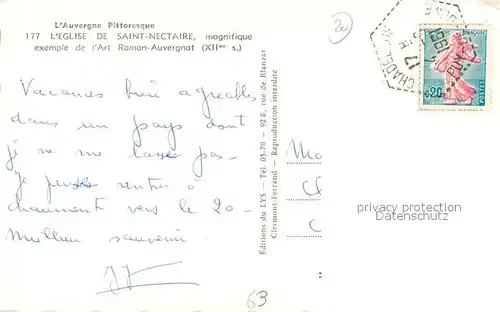 L'Auvergne Pittoresque
177 L'EGLISE DE SAINT-NECTAIRE, magnifique
exemple de l'Art Roman-Auvergnat (XIIme s.)
Vacances bien agréables
dans un pays dont
je ne me lasse pas -
je pense rentrer à
chaumont vers le 20 -
Meilleur souvenir.
Editions du LYS - Tél. 05-70 - 92 E, rue de Blanzat
Clermont-Ferrand - Reproduction interdite
20
63
0,20
POSTES
privacy protection
Datenschutz